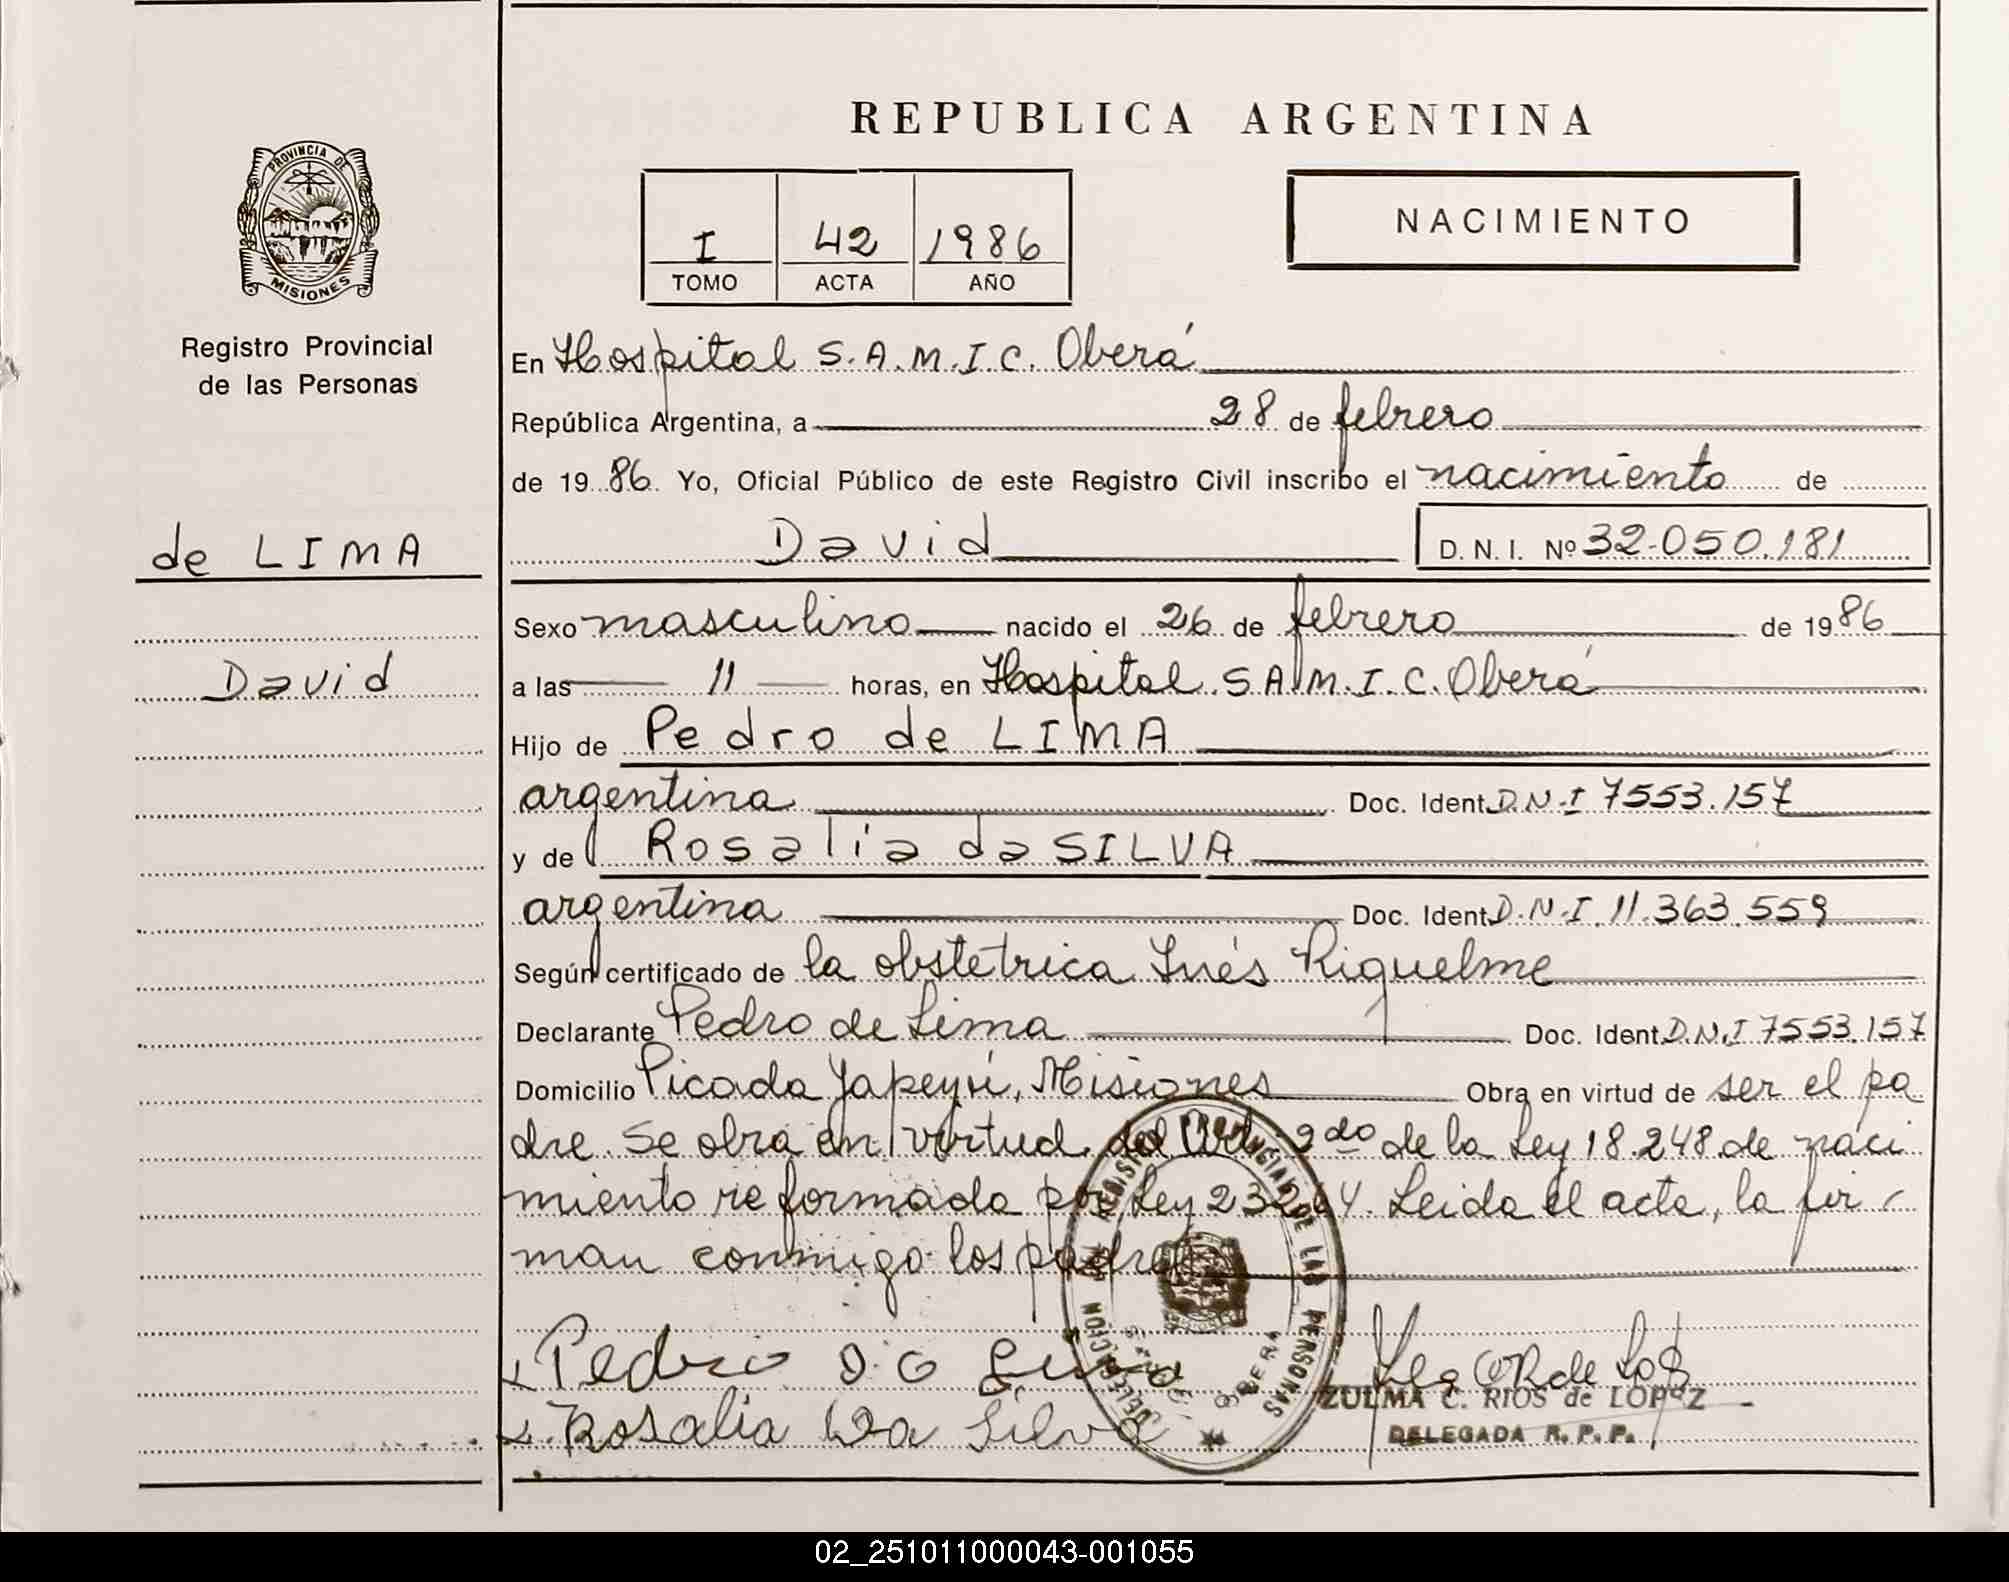 REPUBLICA ARGENTINA
PROVINCIA DE
MISIONES
Registro Provincial
de las Personas
I 42 1986
TOMO ACTA AÑO
NACIMIENTO
En Hospital S.A.M.I.C. Oberá
República Argentina, a 28 de febrero
de 1986. Yo, Oficial Público de este Registro Civil inscribo el nacimiento de
de LIMA
David
David D. N. I. Nº 32.050.181
Sexo masculino nacido el 26 de febrero de 1986
a las 11 horas, en Hospital S.A.M.I.C. Oberá
Hijo de Pedro de LIMA
argentina Doc. Ident. D.N.I 7553.157
y de Rosalia da SILVA
argentina Doc. Ident. D.N.I. 11.363.559
Según certificado de la obstetrica Inés Riquelme
Declarante Pedro de Lima Doc. Ident. D.N.I 7553.157
Domicilio Picada Yapeyú, Misiones Obra en virtud de ser el pa
dre. Se obra en virtud del Art. 2do de la Ley 18.248 de naci
miento reformada por Ley 23264. Leida el acta, la fir
man conmigo los padres
Pedro D. O Lima
Rosalia Da Silva
REGISTRO PROVINCIAL DE LAS PERSONAS
DELEGACION
OBERA
ZULMA C. RIOS de LOPEZ
DELEGADA R. P. P.
02_251011000043-001055